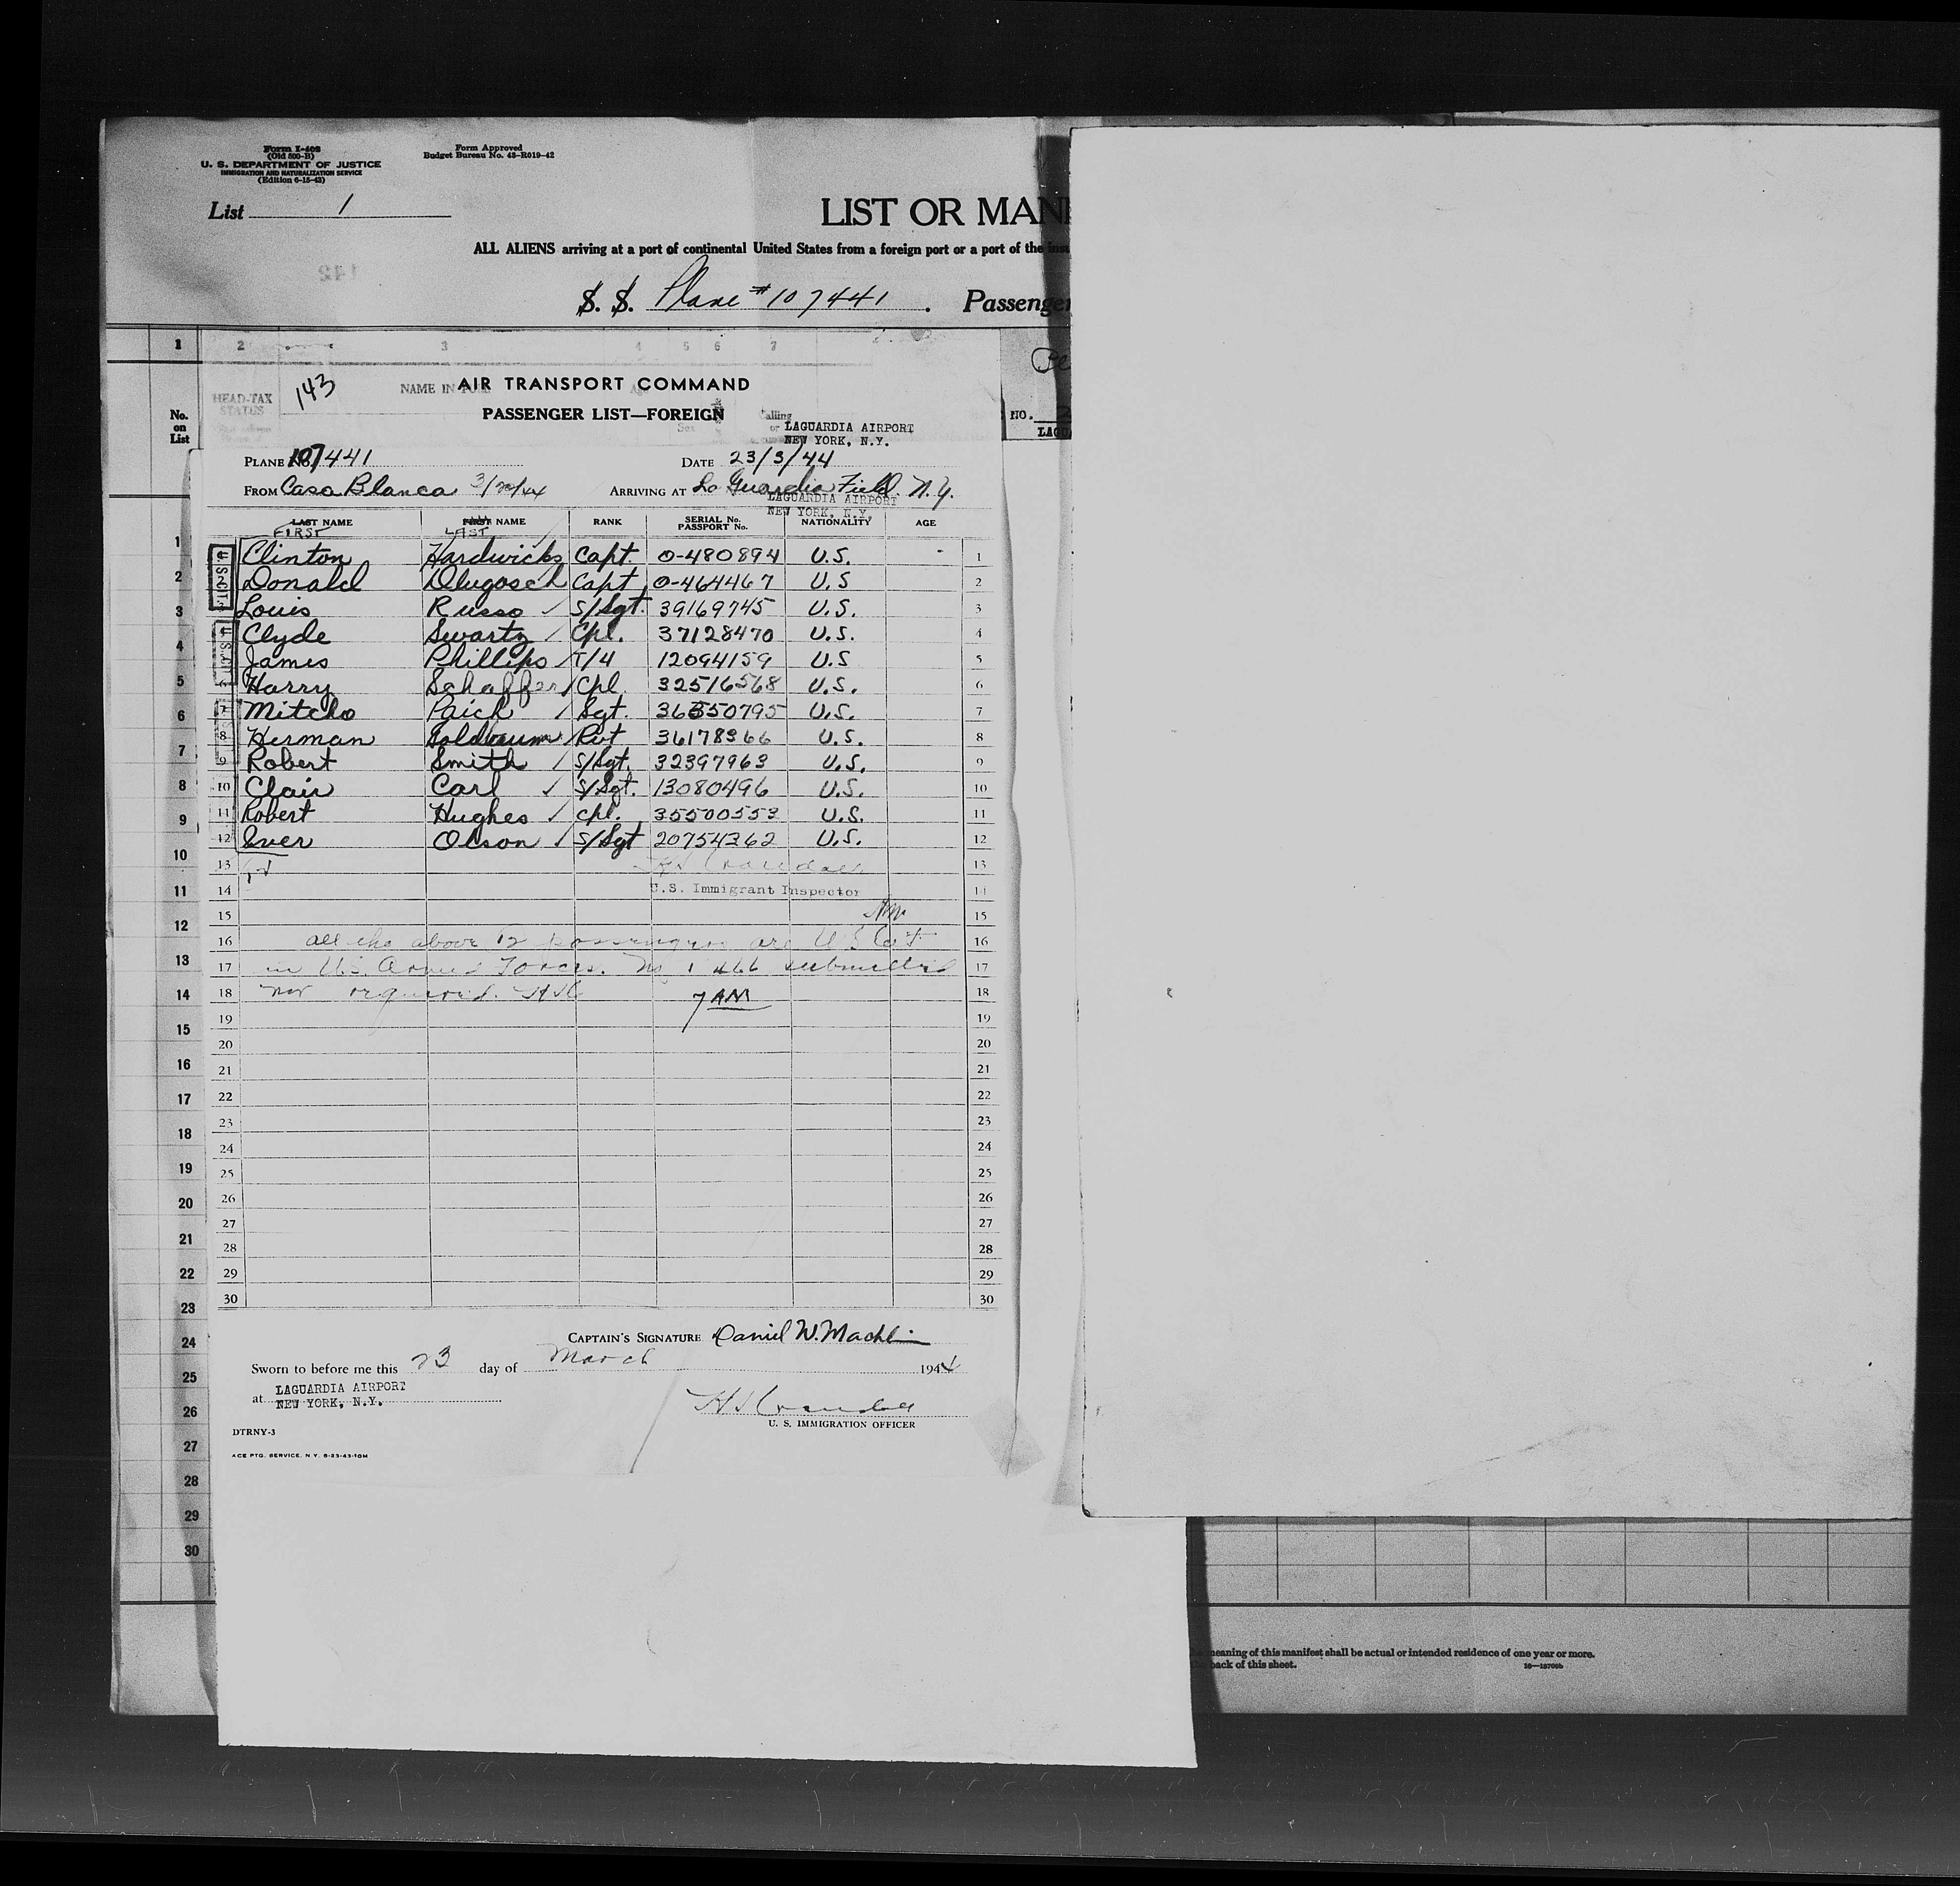 Form I-408
(Old 500-B)
U. S. DEPARTMENT OF JUSTICE
IMMIGRATION AND NATURALIZATION SERVICE
(Edition 6-15-43)
Form Approved
Budget Bureau No. 43-R019-42
List 1
LIST OR MAN
ALL ALIENS arriving at a port of continental United States from a foreign port or a port of the
142
S. S. Plane #107441. Passenger
1 2 3 4 5 6 7
143
HEAD-TAX STATUS
NAME IN
No. on List
NO.
AIR TRANSPORT COMMAND
PASSENGER LIST—FOREIGN
LAGUARDIA AIRPORT
NEW YORK, N.Y.
PLANE No. 107441 DATE 23/3/44
FROM Casa Blanca 3/20/44 ARRIVING AT La Guardia Field N.Y.
LAGUARDIA AIRPORT
NEW YORK, N.Y.
LAST NAME FIRST NAME RANK SERIAL No. PASSPORT No. NATIONALITY AGE
FIRST LAST
1 Clinton Hardwicks Capt. O-480894 U.S. 1
2 Donald Dlugosch Capt O-464467 U.S 2
Louis Russo S/Sgt. 39169745 U.S. 3
Clyde Swartz Cpl. 37128470 U.S. 4
James Phillips T/4 12094159 U.S 5
6 Harry Schaffer Cpl. 32516568 U.S. 6
7 Mitcho Paich Sgt. 36350795 U.S. 7
8 Herman Goldbaum Pvt 36178366 U.S. 8
9 Robert Smith S/Sgt. 32397963 U.S. 9
10 Clair Carl S/Sgt. 13080496 U.S. 10
11 Robert Hughes Cpl. 35500553 U.S. 11
12 Iver Olson S/Sgt 20754362 U.S. 12
13 H S Crandall 13
14 U.S. Immigrant Inspector 14
15 15
16 all the above 12 passengers are U S Cit 16
17 in U.S. Armed Forces. No I 466 submitted 17
18 nor required. HSC 7 AM 18
19 19
20 20
21 21
22 22
23 23
24 24
25 25
26 26
27 27
28 28
29 29
30 30
CAPTAIN'S SIGNATURE Daniel W. Machlin
Sworn to before me this 23 day of March 1944
at LAGUARDIA AIRPORT
NEW YORK, N.Y.
H S Crandall
U. S. IMMIGRATION OFFICER
DTRNY-3
ACE PTG. SERVICE. N.Y. 8-23-43-10M
1
2
3
4
5
6
7
8
9
10
11
12
13
14
15
16
17
18
19
20
21
22
23
24
25
26
27
28
29
30
meaning of this manifest shall be actual or intended residence of one year or more.
back of this sheet.